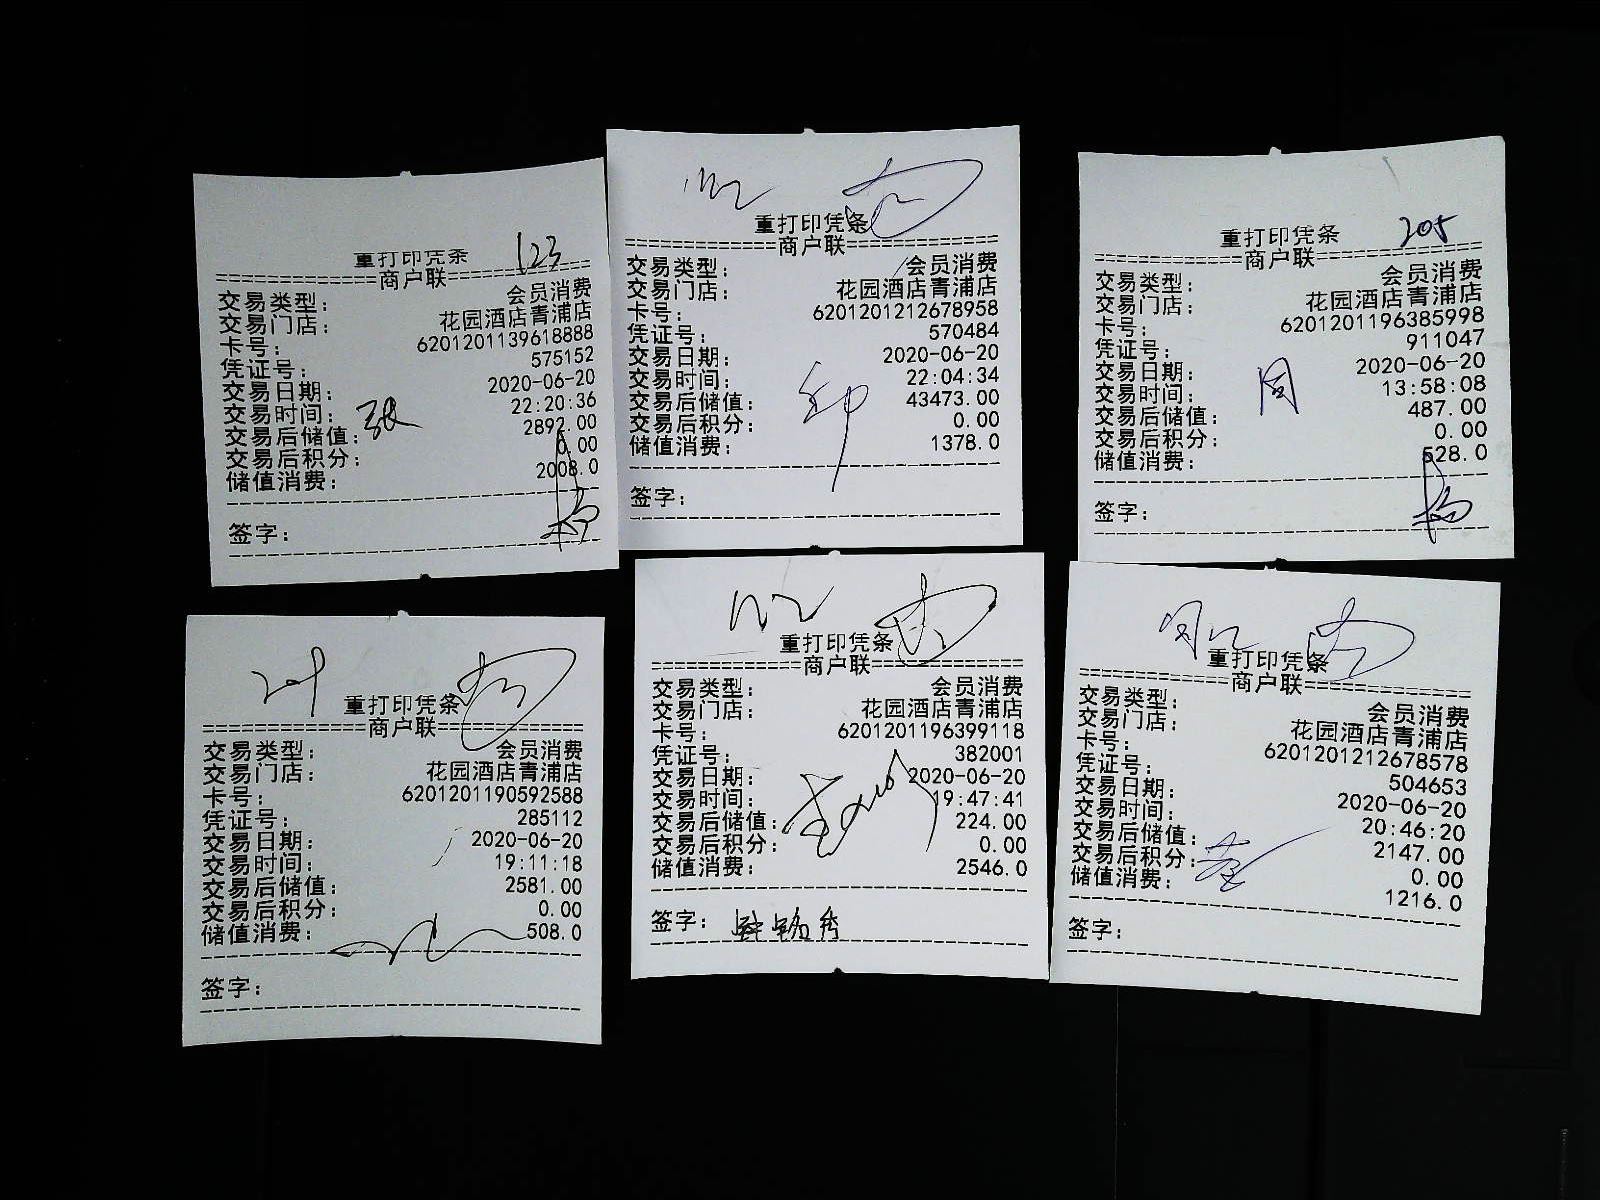 123
重打印凭条
商户联
交易类型： 会员消费
交易门店： 花园酒店青浦店
卡号： 6201201139618888
凭证号： 575152
交易日期： 2020-06-20
交易时间： 22:20:36
交易后储值： 2892.00
交易后积分： 0.00
储值消费： 2008.0
张
签字：
重打印凭条
商户联
交易类型： 会员消费
交易门店： 花园酒店青浦店
卡号： 6201201212678958
凭证号： 570484
交易日期： 2020-06-20
交易时间： 22:04:34
交易后储值： 43473.00
交易后积分： 0.00
储值消费： 1378.0
签字：
205
重打印凭条
商户联
交易类型： 会员消费
交易门店： 花园酒店青浦店
卡号： 6201201196385998
凭证号： 911047
交易日期： 2020-06-20
交易时间： 13:58:08
交易后储值： 487.00
交易后积分： 0.00
储值消费： 528.0
周
签字：
重打印凭条
商户联
交易类型： 会员消费
交易门店： 花园酒店青浦店
卡号： 6201201190592588
凭证号： 285112
交易日期： 2020-06-20
交易时间： 19:11:18
交易后储值： 2581.00
交易后积分： 0.00
储值消费： 508.0
签字：
重打印凭条
商户联
交易类型： 会员消费
交易门店： 花园酒店青浦店
卡号： 6201201196399118
凭证号： 382001
交易日期： 2020-06-20
交易时间： 19:47:41
交易后储值： 224.00
交易后积分： 0.00
储值消费： 2546.0
签字：
重打印凭条
商户联
交易类型： 会员消费
交易门店： 花园酒店青浦店
卡号： 6201201212678578
凭证号： 504653
交易日期： 2020-06-20
交易时间： 20:46:20
交易后储值： 2147.00
交易后积分： 0.00
储值消费： 1216.0
签字：